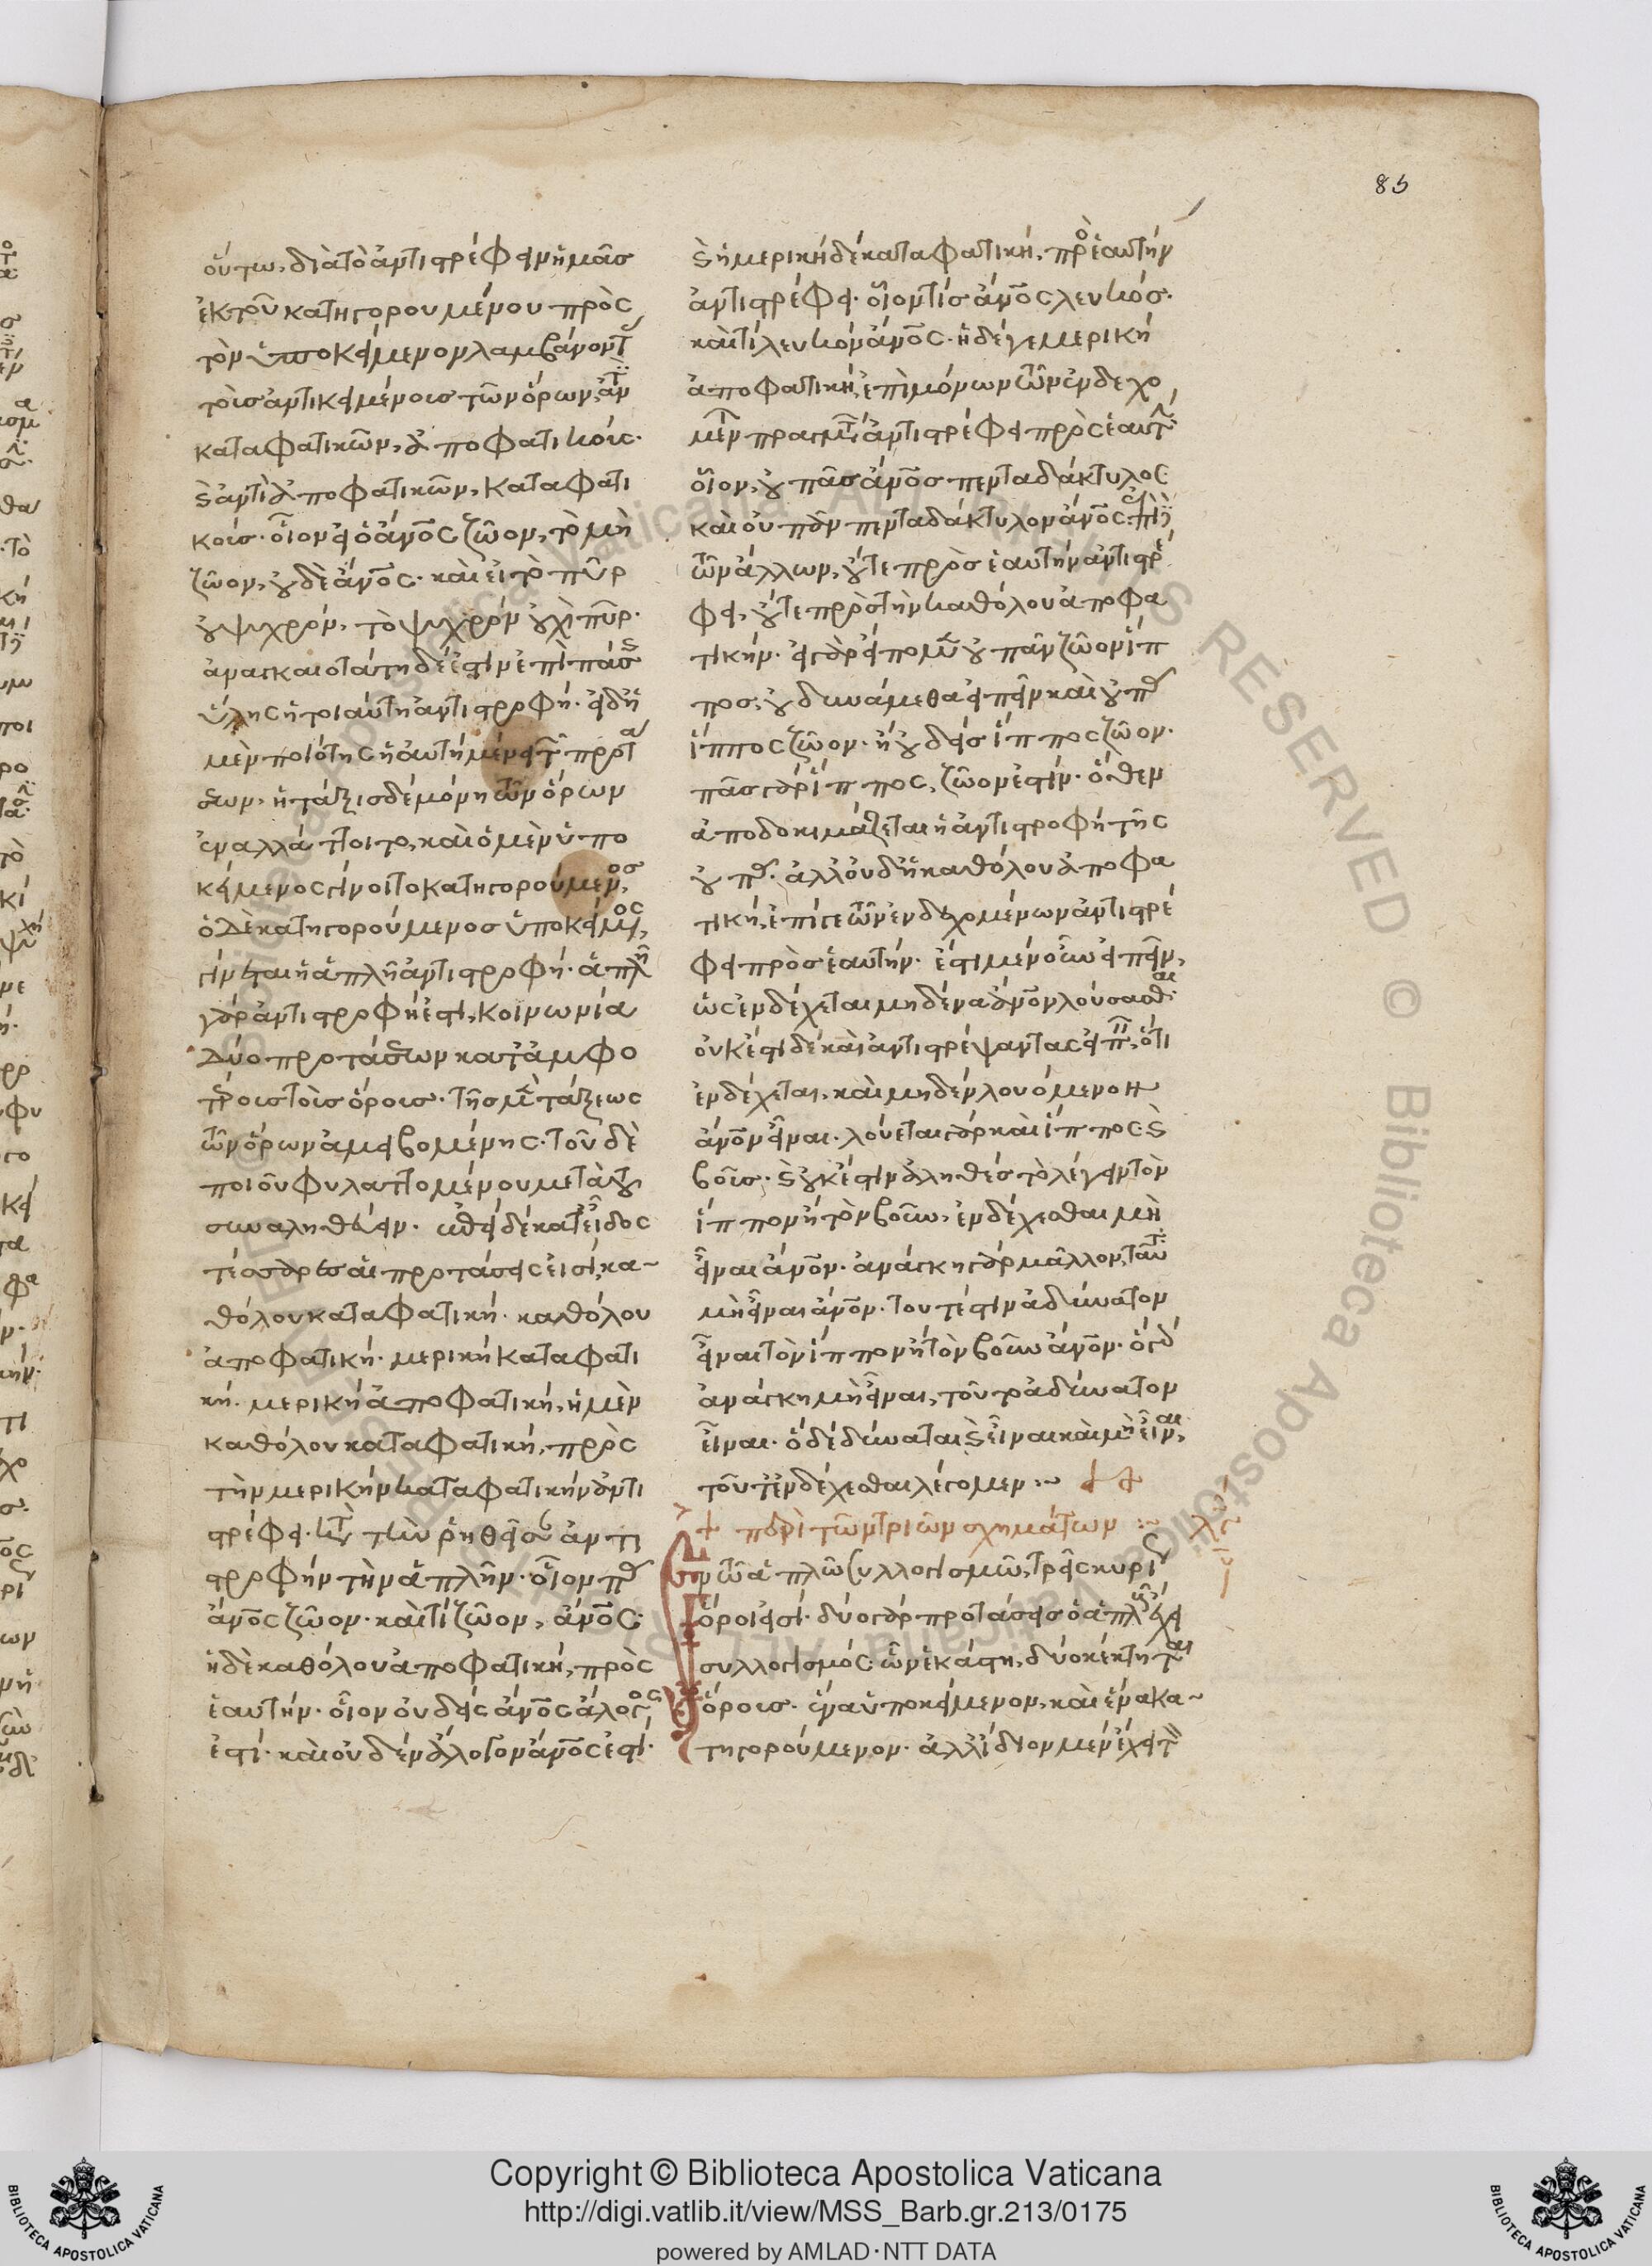 85
οὕτω, διὰ τὸ ἀντιστρέφειν ἡμᾶσ
ἐκ τοῦ κατηγορουμένου πρὸς
τὸν ὑποκείμενον λαμβάνοντ
τοῖσ ἀντικειμένοισ τῶν ὅρων, ἀντ
καταφατικῶν, ἀποφατικοῖς·
καὶ ἀντὶ ἀποφατικῶν, καταφατι
κοῖσ· οἷον εἰ ὁ ἄνος ζῶον, τὸ μὴ
ζῶον, οὐδὲ ἄνος· καὶ εἰ τὸ πῦρ
οὐ ψυχρόν, τὸ ψυχρὸν οὐχὶ πῦρ·
ἀναγκαιοτάτη δέ ἐστιν ἐπὶ πάσ
ὕλης ἡ τοιαύτη ἀντιστροφή· εἰ δὲ ἡ
μὲν ποιότης ἡ αὐτὴ μένει τ προτ
σεων, ἡ τάξισ δὲ μόνη τῶν ὅρων
ἐναλλάττοιτο, καὶ ὁ μὲν ὑπο
κείμενος γίνοιτο κατηγορούμενος,
ὁ δὲ κατηγορούμενοσ ὑποκείμος,
γίνεται ἡ ἁπλῆ ἀντιστροφή· ἁπλῆ
γὰρ ἀντιστροφή ἐστι, κοινωνία
δύο προτάσεων κατ' ἀμφο
τέροισ τοῖσ ὅροισ· τῆσ μὲν τάξεως
τῶν ὅρων ἀμειβομένης· τοῦ δὲ
ποιοῦ φυλαττομένου μετὰ τοῦ
συναληθεύειν· ἐπεὶ δὲ κατ' εἶδος
τέσσαρεσ αἱ προτάσεις εἰσί, κα~
θόλου καταφατική· καθόλου
ἀποφατική· μερικὴ καταφατι
κή· μερικὴ ἀποφατική, ἡ μὲν
καθόλου καταφατική, πρὸς
τὴν μερικὴν καταφατικὴν ἀντι
στρέφει· κατὰ τὴν ῥηθεῖσαν ἀντι
στροφὴν τὴν ἁπλῆν· οἷον πᾶς
ἄνος ζῶον· καὶ τὶ ζῶον, ἄνος·
ἡ δὲ καθόλου ἀποφατική, πρὸς
ἑαυτήν· οἷον οὐδεὶς ἄνος ἄλογος
ἐστί· καὶ οὐδὲν ἄλογον ἄνος ἐστί·
καὶ ἡ μερικὴ δὲ καταφατική, πρὸς ἑαυτὴν
ἀντιστρέφει· οἷον τίσ ἄνος λευκόσ·
καὶ τὶ λευκὸν ἄνος· ἡ δέ γε μερικὴ
ἀποφατική, ἐπὶ μόνων τῶν ἐνδεχο
μέν πραγμάτ ἀντιστρέφει πρὸς ἑαυτ
οἷον, οὐ πᾶσ ἄνοσ πενταδάκτυλος
καὶ οὐ πᾶν πενταδάκτυλον ἄνος· ἐπὶ δὲ
τῶν ἄλλων, οὔτε πρὸσ ἑαυτὴν ἀντιστρέ
φει, οὔτε πρὸσ τὴν καθόλου ἀποφα
τικήν· εἰ γὰρ εἴπομεν οὐ πᾶν ζῶον ἵπ
ποσ, οὐ δυνάμεθα εἰπεῖν καὶ οὐ πᾶς
ἵππος ζῶον· ἢ οὐδεὶσ ἵππος ζῶον·
πᾶσ γὰρ ἵππος, ζῶον ἐστίν· ὅθεν
ἀποδοκιμάζεται ἡ ἀντιστροφὴ τῆς
οὐ πᾶς· ἀλλ' οὐδ' ἡ καθόλου ἀποφα
τική, ἐπί γε τῶν ἐνδεχομένων ἀντιστρέ
φει πρὸσ ἑαυτήν· ἔστι μὲν οὖν εἰπεῖν,
ὡς ἐνδέχεται μηδένα ἄνον λούσασθαι·
οὐκ ἔστι δὲ καὶ ἀντιστρέψαντας εἰπ, ὅτι
ἐνδέχεται, καὶ μηδὲν λουόμενον
ἄνον εἶναι· λούεται γὰρ καὶ ἵππος καὶ
βοῦσ· καὶ οὐκ ἔστιν ἀληθὲσ τὸ λέγειν τὸν
ἵππον ἢ τὸν βοῦν, ἐνδέχεσθαι μὴ
εἶναι ἄνον· ἀνάγκη γὰρ μᾶλλον, ταῦτ
μὴ εἶναι ἄνον· τουτέστιν ἀδύνατον
εἶναι τὸν ἵππον ἢ τὸν βοῦν ἄνον· ὃ γὰρ
ἀνάγκη μὴ εἶναι, τοῦτο ἀδύνατον
εἶναι· ὃ δὲ δύναται καὶ εἶναι καὶ μὴ εἶναι,
τοῦτ' ἐνδέχεσθαι λέγομεν :~
+ περὶ τῶν τριῶν σχημάτων :~
Ἐν τῶ ἁπλῶ συλλογισμῶ, τρεῖς κυρί
ὅροι εἰσί· δύο γὰρ προτάσεισ ὁ ἁπλοῦς ἔχει
συλλογισμός· ὧν ἑκάστη, δύο κέκτηται
ὅρους· ἕνα ὑποκείμενον, καὶ ἕνα κα~
τηγορούμενον· ἀλλ' ἴδιον μὲν ἔχει
Copyright © Biblioteca Apostolica Vaticana
http://digi.vatlib.it/view/MSS_Barb.gr.213/0175
powered by AMLAD·NTT DATA
BIBLIOTECA APOSTOLICA VATICANA
BIBLIOTECA APOSTOLICA VATICANA